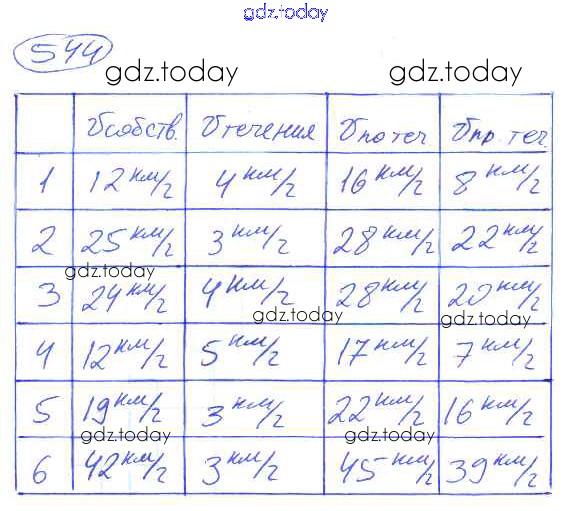 gdz.today
544
gdz.today gdz.today
Vсобств. Vтечения Vпо теч Vпр. теч.
1 12 км/г 4 км/г 16 км/г 8 км/г
2 25 км/г 3 км/г 28 км/г 22 км/г
gdz.today
3 24 км/г 4 км/г 28 км/г 20 км/г
gdz.today gdz.today
4 12 км/г 5 км/г 17 км/г 7 км/г
5 19 км/г 3 км/г 22 км/г 16 км/г
gdz.today gdz.today
6 42 км/г 3 км/г 45 км/г 39 км/г